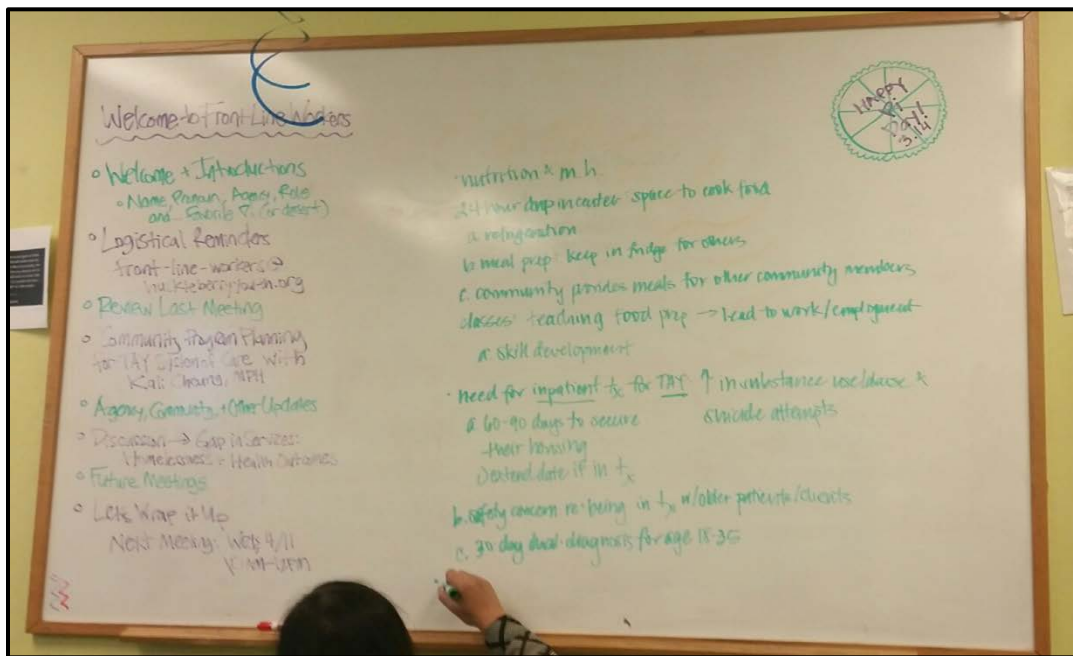 Welcome to Front Line Workers
◦ Welcome + Introductions
◦ Name, Pronoun, Agency, Role
and Favorite (or desert)
◦ Logistical Reminders
front-line-workers@
huckleberryyouth.org
◦ Review Last Meeting
◦ Community Program Planning
for TAY System of Care with
Kali Cheung, MPH
◦ Agency, Community, + Other Updates
◦ Discussion → Gap in Services:
Homelessness + Health Outcomes
◦ Future Meetings
◦ Lets Wrap it Up
Next Meeting: Weds 4/11
HAPPY
Pi
Day!
3.14
· nutrition * m.h.
24 hour drop in center space to cook food
a. refrigeration
b. meal prep: keep in fridge for others
c. community provides meals for other community members
classes: teaching food prep → lead to work/employment
a. skill development
· need for inpatient tx for TAY ↑ in substance use/abuse *
suicide attempts
a. 60-90 days to secure
their housing
extend date if in tx
b. safety concern re: being in tx w/older patients/clients
c. 30 day dual-diagnosis for age 18-35